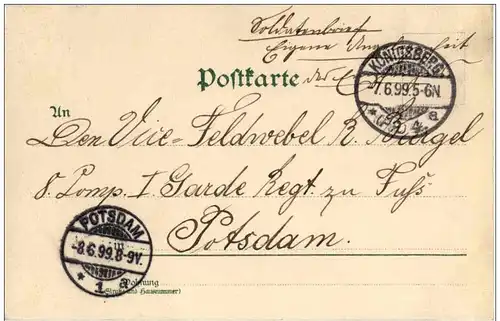 Soldatenbrief
Eigene Angelegenheit
Postkarte des
KÖNIGSBERG
7.6.99.5-6N.
* (PR.) 4 a
An
Den Vice-Feldwebel R.
8. Comp. I Garde Regt. zu Fuß
Potsdam.
POTSDAM
-8.6.99.8-9V.
* 1 a
Wohnung
(Straße und Hausnummer)